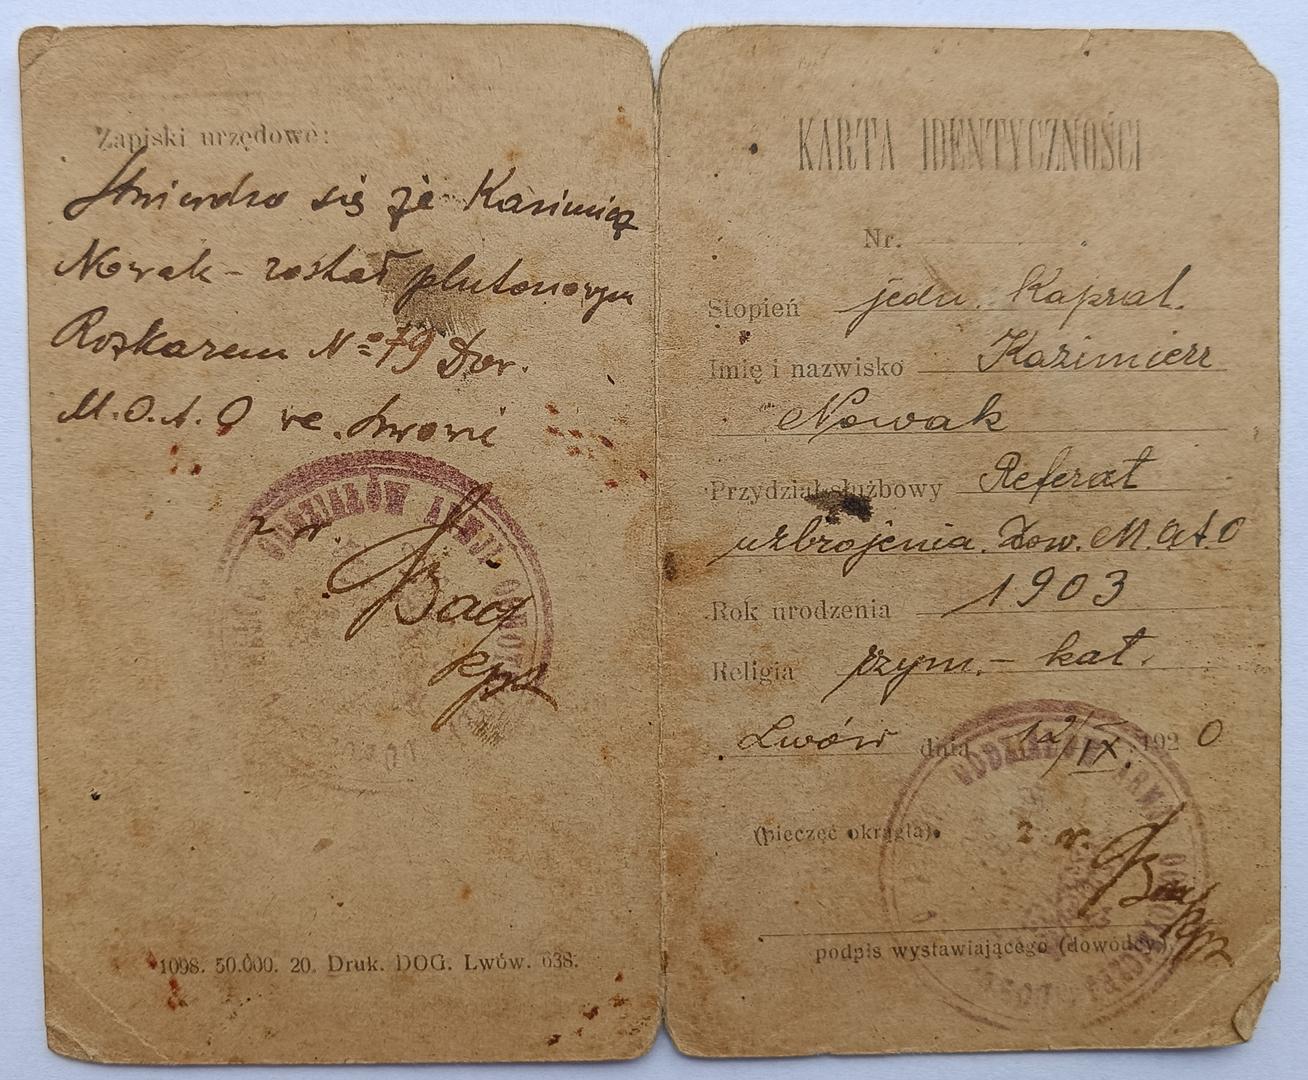 Zapiski urzędowe:
Stwierdza się że Kazimierz
Nowak – został plutonowym
Rozkazem Nº 79 Dow.
M.O.A.O we Lwowie
z r.
Bag
kpt
ODDZIAŁÓW ARMJI OCHOTN
1098. 50.000. 20. Druk. DOG. Lwów. 638.
KARTA IDENTYCZNOŚCI
Nr.
Stopień jedn. Kapral.
Imię i nazwisko Kazimierz
Nowak
Przydział służbowy Referat
uzbrojenia. Dow. M.O.A.O
Rok urodzenia 1903
Religia rzym. – kat.
Lwów dnia 12/IX. 1920
(pieczęć okrągła).
z r.
kpt
podpis wystawiającego (dowódcy).
ODDZIAŁÓW ARMJI